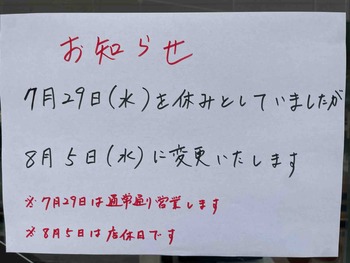 お知らせ
7月29日(水)を休みとしていましたが
8月5日(水)に変更いたします
※7月29日は通常通り営業します
※8月5日は店休日です